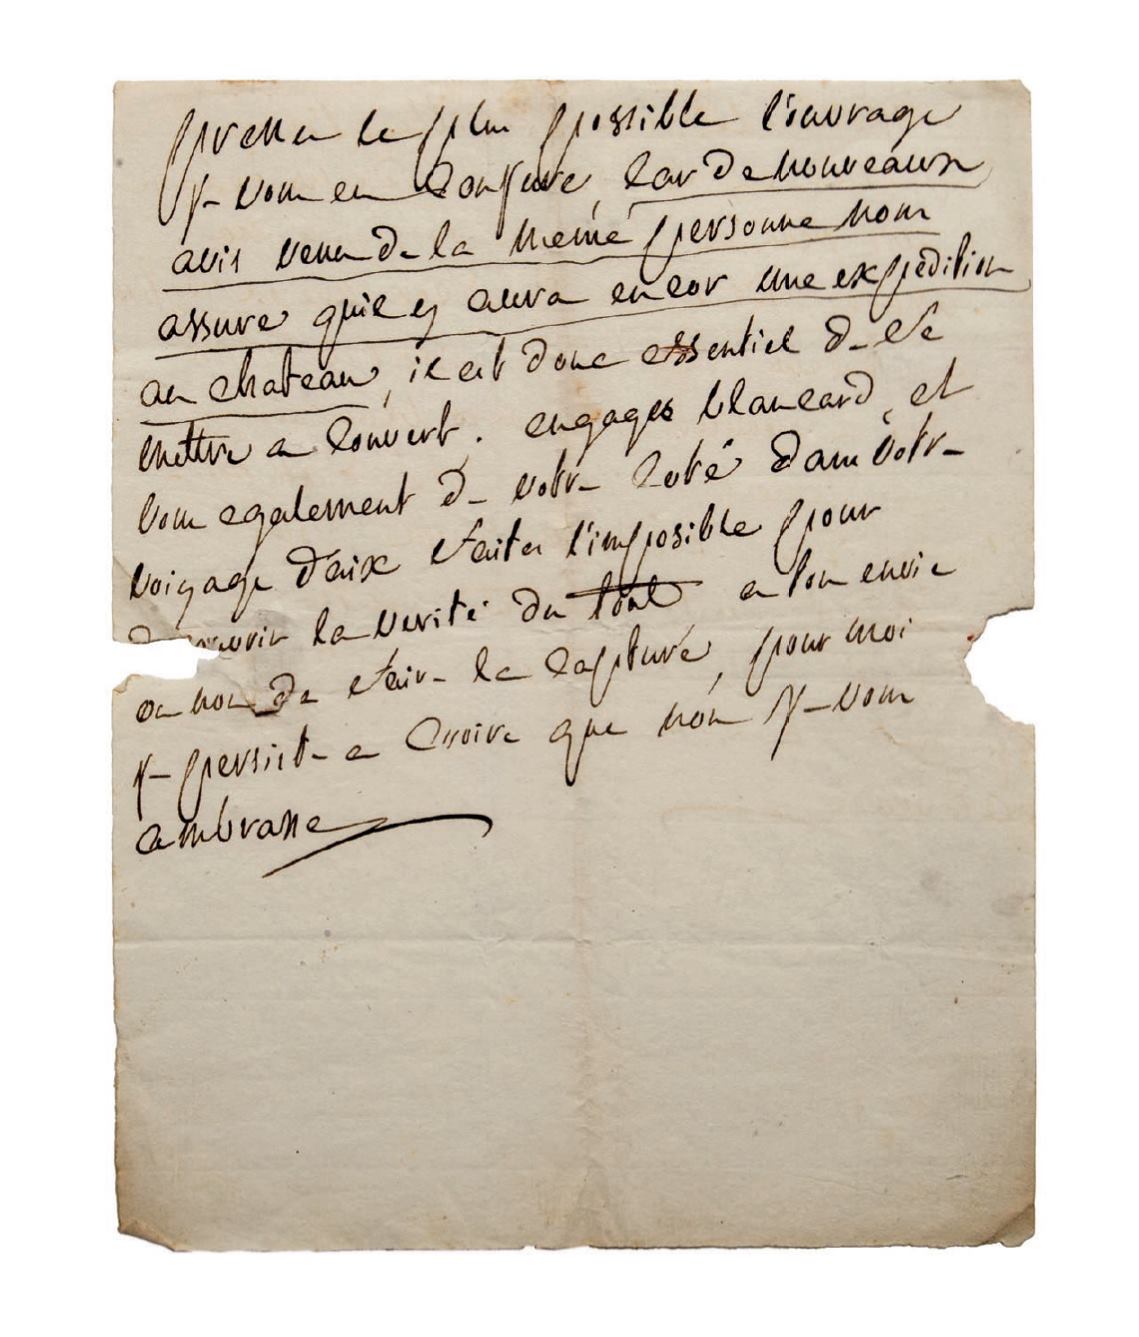 presser le plus possible l'ouvrage
je vous en conjure, car de nouveaux
avis venu de la meme personne nous
assure qu'il y aura encor une expedition
au chateau, il est donc essentiel de se
mettre a couvert. engagés blancard, et
vous egalement de votre coté dans votre
voiyage d'aix faites l'imposible pour
la verité du tout a t'on envie
ou non de faire la capture, pour moi
je persiste a croire que non je vous
ambrasse